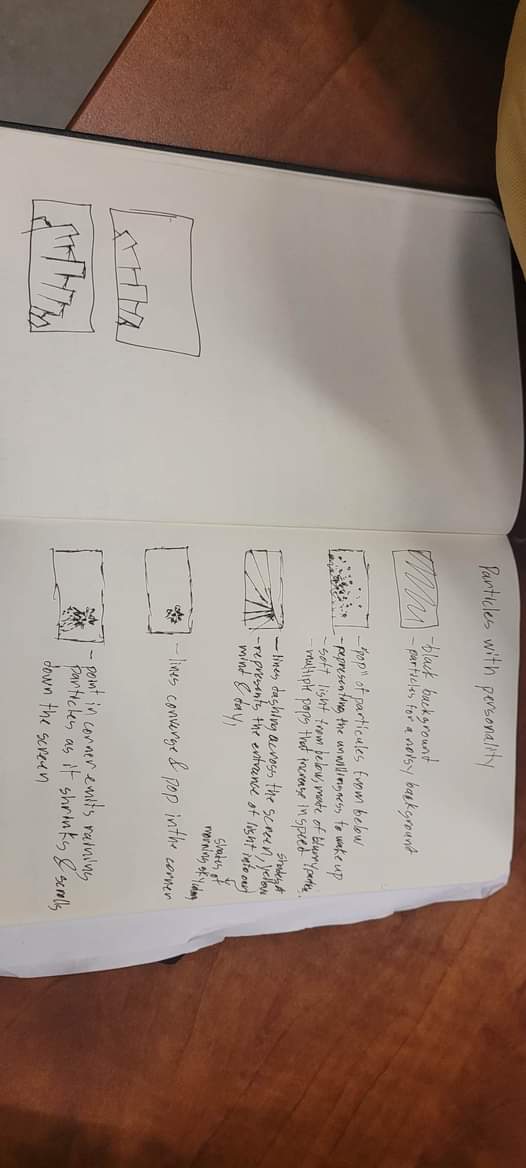 Particles with personality
- black background
- particles for a noisy background
- "pop" of particules from below
- representing the unwillingness to wake up
- soft light from below, made of blurry parts.
- multiple pops that increase in speed
- lines dashing across the screen, yellow
shades of
- represents the entrance of light into our
mind & day,
shades of
morning sky
- lines converge & pop in the corner
- point in corner emits raining
particles as it shrinks & scrolls
down the screen